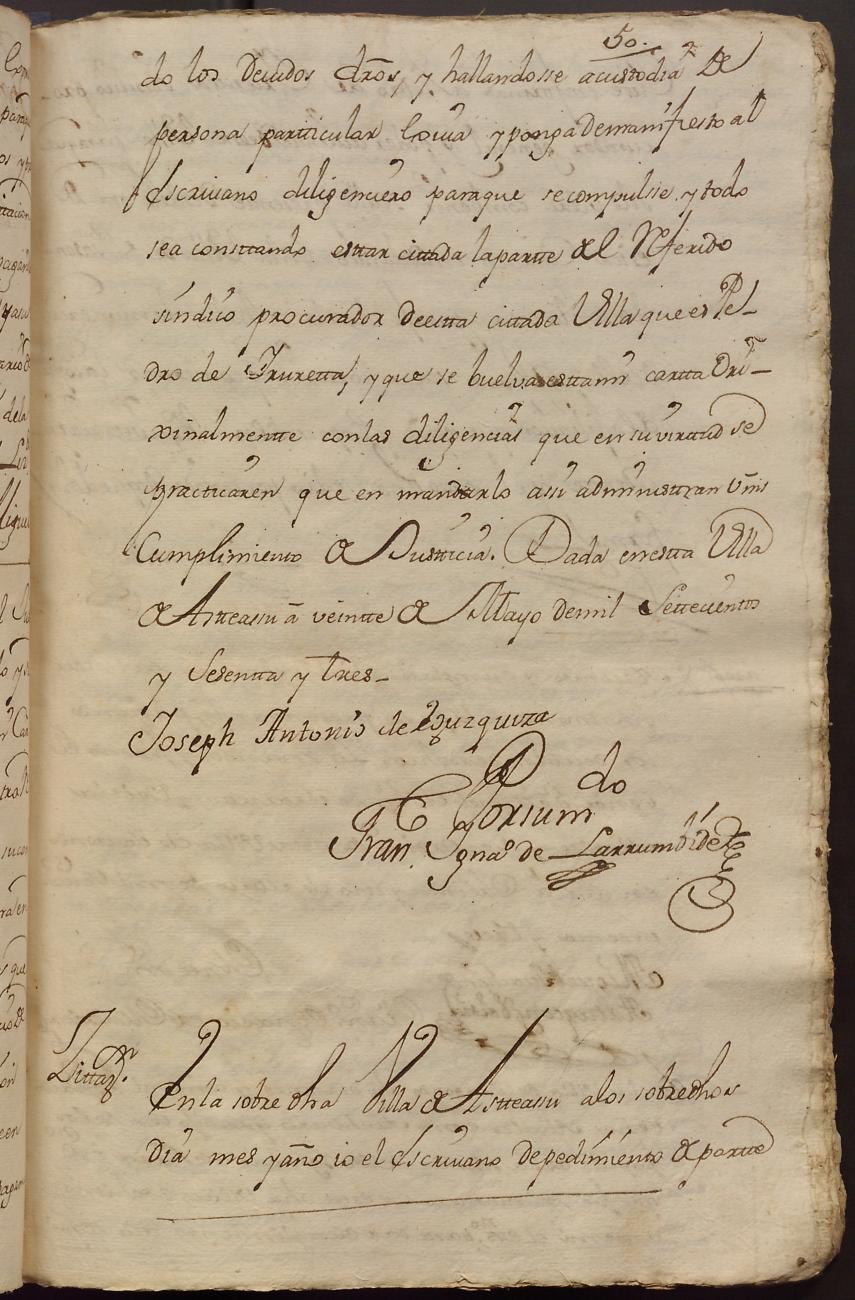 50.
do los Devidos dros, y hallandosse a custodia de
persona particular loiva y ponga demanifiesto al
Escrivano diligenciero paraque se compulse, y todo
sea consttando esttar cittada la partte del Referido
sindico procurador de estta cittada Villa que es Pe-
dro de Yruretta, y que se buelva estta mi cartta Ori-
xinalmentte con las diligencias que en su virttud se
practticaren que en mandarlo assi administtran Vms
Cumplimiento de Justticia. Dada en estta Villa
de Astteassu â veintte de Mayo de mil Settecientos
y Sesentta y tres-
Joseph Antonio de Eguzquiza
Por su mdo
Fran. Ygnaº de Larrumbide
Zittaon.
En la sobre dha Villa de Astteassu a los sobre dhos
dia mes y año io el Escrivano de pedimiento de partte